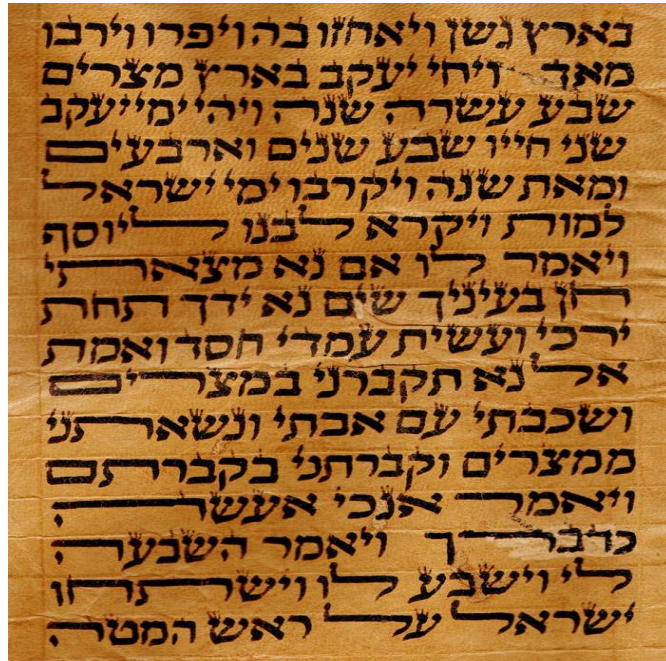 בארץ גשן ויאחזו בה ויפרו וירבו
מאד ויחי יעקב בארץ מצרים
שבע עשרה שנה ויהי ימי יעקב
שני חייו שבע שנים וארבעים
ומאת שנה ויקרבו ימי ישראל
למות ויקרא לבנו ליוסף
ויאמר לו אם נא מצאתי
חן בעיניך שים נא ידך תחת
ירכי ועשית עמדי חסד ואמת
אל נא תקברני במצרים
ושכבתי עם אבתי ונשאתני
ממצרים וקברתני בקברתם
ויאמר אנכי אעשה
כדברך ויאמר השבעה
לי וישבע לו וישתחו
ישראל על ראש המטה